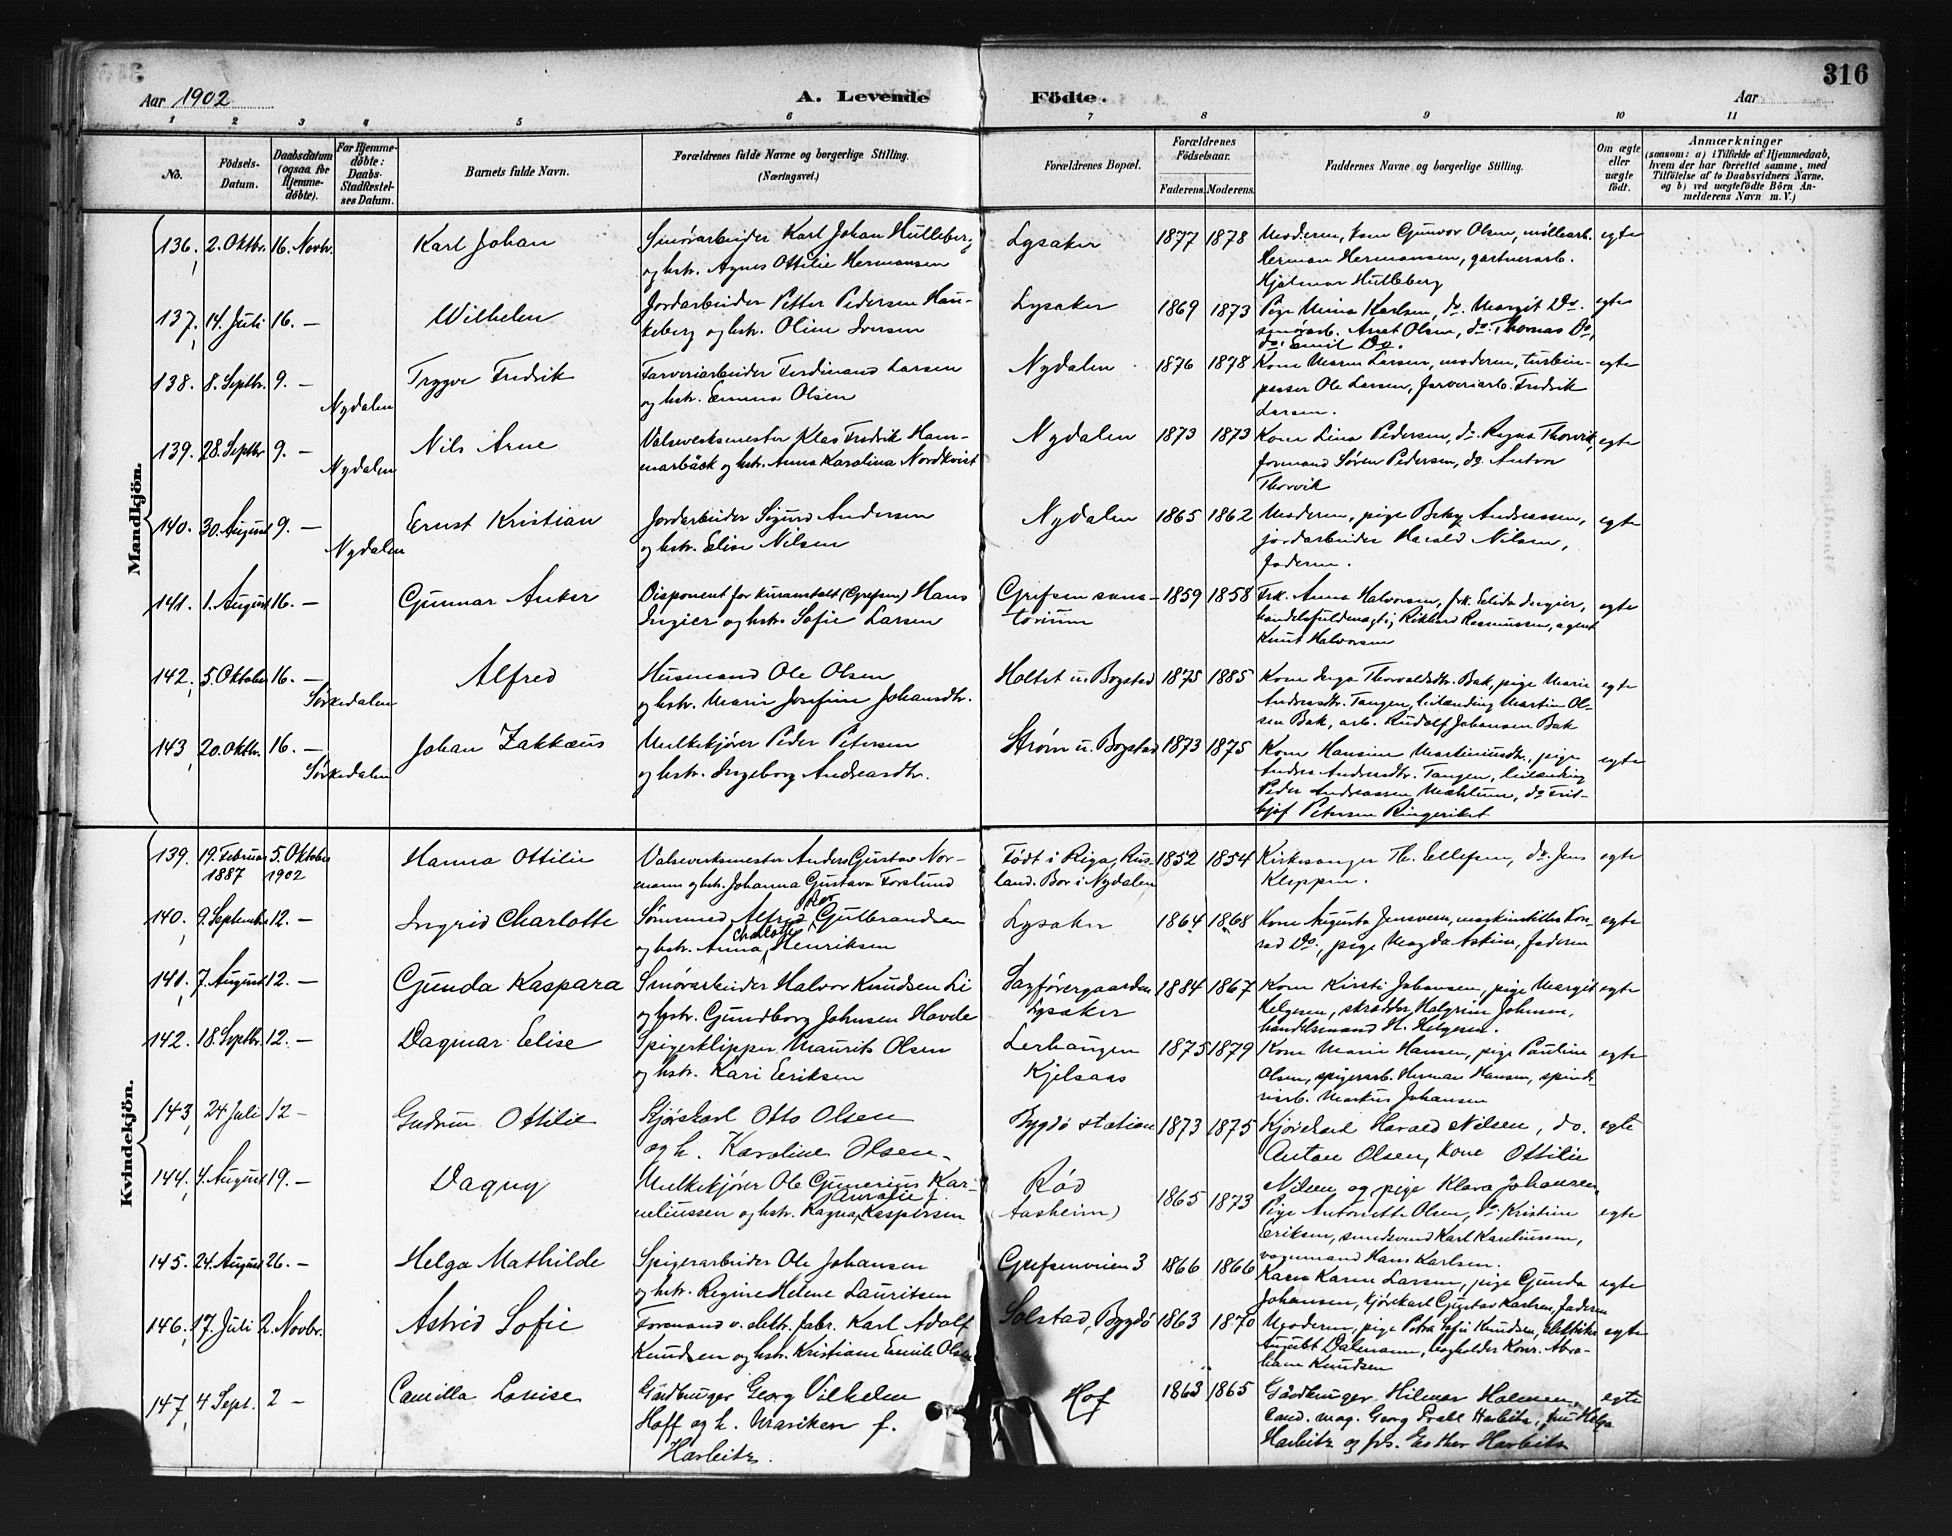 316
Aar 1902
A. Levende Födte.
Aar
1 2 3 4 5 6 7 8 9 10 11
No.
Födsels-Datum.
Daabsdatum (ogsaa for Hjemmedöbte).
For Hjemmedöbte: Daabs-Stadfæstelses Datum.
Barnets fulde Navn.
Forældrenes fulde Navne og borgerlige Stilling. (Næringsvei.)
Forældrenes Bopæl.
Forældrenes Födselsaar.
Faderens. Moderens.
Faddernes Navne og borgerlige Stilling.
Om ægte eller uægte födt.
Anmærkninger
(saasom: a) i Tilfælde af Hjemmedaab, hvem der har forrettet samme, med Tilföielse af to Daabsvidners Navne, og b) ved uægtefödte Börn Anmelderens Navn m. V.)
Mandkjön.
136. 2. Oktbr. 16. Novbr. Karl Johan Smörarbeider Karl Johan Hulleberg Lysaker 1877 1878 Moderen, kone Gunvor Olsen, möllearb. egte
og hstr. Agnes Ottilie Hermansen Herman Hermansen, gartnerarb.
Hjalmar Hulleberg
137. 14. Juli 16. — Wilhelm Jordarbeider Petter Pedersen Hau- Lysaker 1869 1873 Pige Mina Karlsen, do. Margit Do. egte
keberg og hstr. Oline Iversen smörarb. Anet Olsen, do. Thomas Do,
do. Emil Do.
138. 8. Septbr. 9. — Trygve Fredrik Farveriarbeider Ferdinand Larsen Nydalen 1876 1878 Kone Maren Larsen, moderen, turbin- egte
Nydalen og hstr. Emma Olsen passer Ole Larsen, farveriarb. Fredrik
Larsen.
139. 28. Septbr. 9. — Nils Arne Valseverksmester Klas Fredrik Ham- Nydalen 1873 1873 Kone Lina Pedersen, do. Ragna Thorvik, egte
Nydalen marbäck og hstr. Anna Karolina Nordkvist formand Sören Pedersen, do. Anton
Thorvik
140. 30. August 9. — Ernst Kristian Jordarbeider Sigurd Andersen Nydalen 1865 1862 Moderen, pige Betzy Andreassen, egte
Nydalen og hstr. Elise Nilsen jordarbeider Harald Nilsen,
faderen.
141. 1. August 16. — Gunnar Anker Disponent for kuranstalt (Grefsen) Hans Grefsen sana- 1859 1858 Frk. Anna Halvorsen, frk. Elida Ingier, egte
Ingier og hstr. Sofie Larsen torium handelsfuldmægtig Rikhard Rasmussen, agent
Knut Halvorsen
142. 5. Oktober 16. — Alfred Husmand Ole Olsen Holtet u. Bogstad 1875 1885 Kone Inga Thorvaldsdtr. Bak, pige Marie egte
Sörkedalen og hstr. Marie Josefine Johansdtr. Andreasdtr. Tangen, leilænding Martin Ol-
sen Bak, arb. Rudolf Johansen Bak
143. 20. Oktbr. 16. — Johan Zakkæus Melkekjörer Peder Petersen Ström u. Bogstad 1873 1875 Kone Hansine Martiniusdtr., pige egte
Sörkedalen og hstr. Ingeborg Andreasdtr. Andrea Andreasdtr. Tangen, leilænding
Peder Andreassen Mæhlum, do. Frit-
hjof Petersen Ringeriket
Kvindekjön.
139. 19. Februar 5. Oktober Hanna Ottilie Valseverksmester Anders Gustav Nor- Födt i Riga, Rus- 1852 1854 Kirkesanger Th. Ellefsen, do. Jens egte
1887 1902 mann og hstr. Johanna Gustava Forslund land. Bor i Nydalen Kleppen.
140. 9. September 12. — Ingrid Charlotte Sömand Alfred Gulbrandsen Lysaker 1864 1868 Kone Augusta Jensven, maskinstiller Kon- egte
og hstr. Anna Charlotte Henriksen rad Do., pige Magda Askim, faderen
141. 7. August 12. — Gunda Kaspara Smörarbeider Halvor Knudsen Li Sagförergaarden 1884 1867 Kone Kirsti Johansen, pige Margit egte
og hstr. Gundborg Johnsen Hovde Lysaker Helgesen, skrædder Halgrim Johnsen,
handelsmand H. Helgesen.
142. 18. Septbr. 12. — Dagmar Elise Spigerklipper Maurits Olsen Lerhaugen 1875 1879 Kone Marie Hansen, pige Pauline egte
og hstr. Kari Eriksen Kjelsaas Olsen, spigerarb. Herman Hansen, spinde-
riarb. Markus Johansen
143. 24 Juli 12 — Gudrun Ottilie Kjörekarl Otto Olsen Bygdö station 1873 1875 Kjörekarl Harald Nilsen, do. egte
og h. Karoline Olsen. Anton Olsen, Kone Ottilie
Nilsen og pige Klara Johansen
144. 4. August 19. — Dagny Melkekjörer Ole Gunerius Kar- Röd 1865 1873 Pige Antonette Olsen, do. Kristine egte
neliussen og hstr. Ragna Kaspersen (Aasheim) Eriksen, smedsvend Karl Karliussen,
vognmand Hans Karlsen.
145. 24. August 26. — Helga Mathilde Spigerarbeider Ole Johansen Grefsenveien 3 1866 1866 Kone Karen Larsen, pige Gunda egte
og hstr. Regine Helene Lauritsen Johansen, kjörekarl Gustav Karlsen, faderen
146. 17. Juli 2. Novbr. Astrid Sofie Formand v. elektr. fabr. Karl Adolf Solstad, Bygdö 1863 1870 Moderen, pige Petra Sofie Knudsen, egte
Knudsen og hstr. Kristiane Emilie Olsen August Dalmann, bogholder Konr. Abra-
ham Knudsen
147. 4 Sept. 2 — Camilla Louise Gårdbruger Georg Vilhelm Hof 1863 1865 Gårdbruger Hilmar Holmen, egte
Hoff og h. Mariken f. cand. mag. Georg Prahl Harbitz, fru Helga
Harbitz. Harbitz og frk. Esther Harbitz